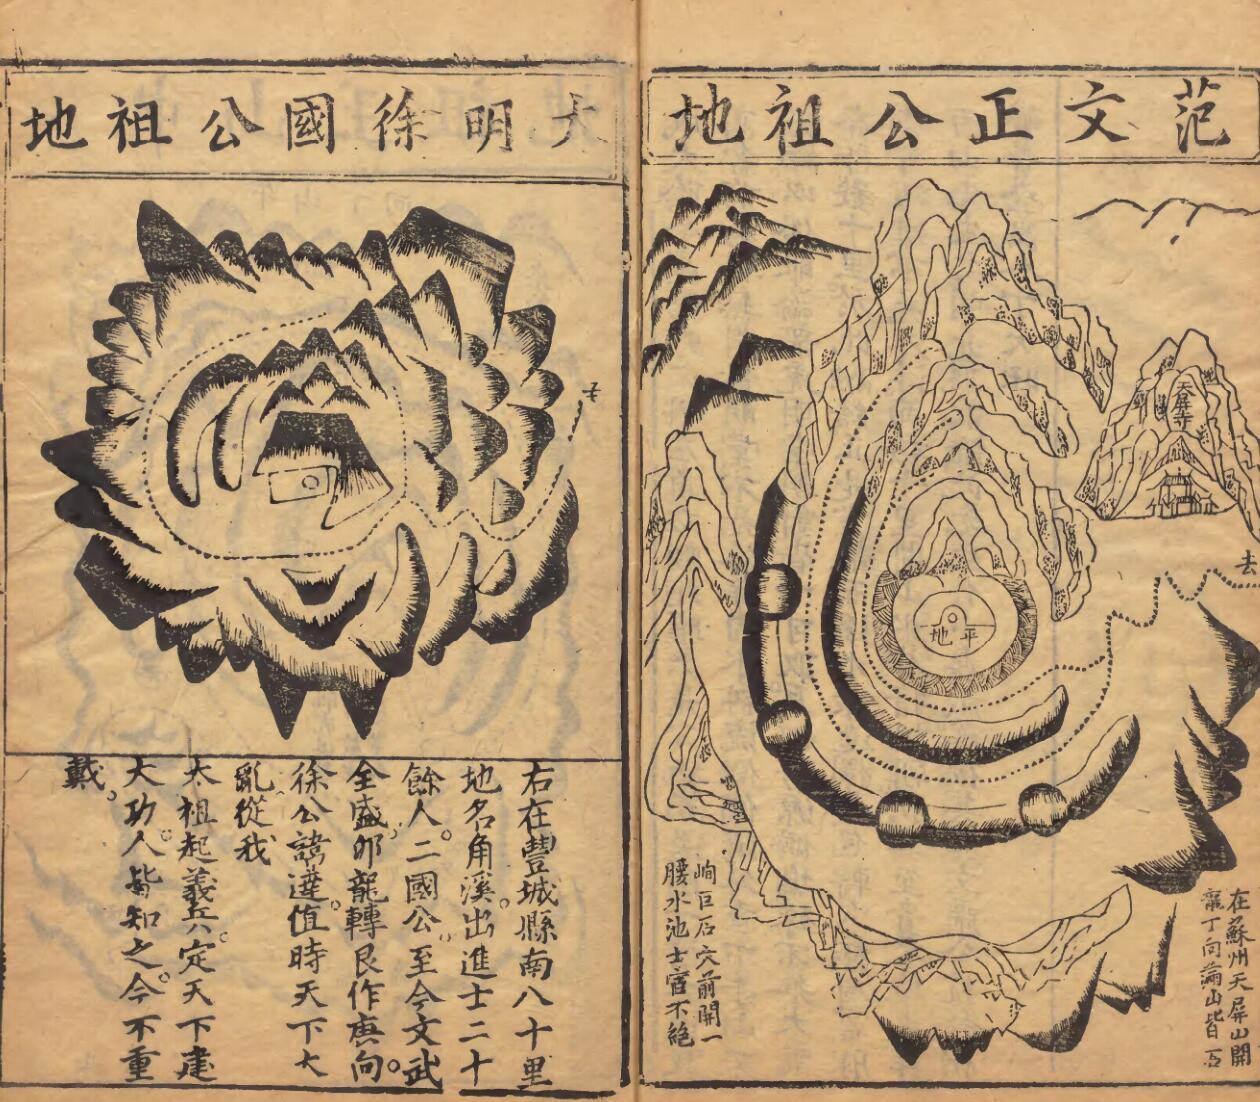 范文正公祖地
天屏寺
去
平地
在蘇州天屏山開
龍丁向滿山皆石
峋巨石穴前開一
腰水池士宦不絶
大明徐國公祖地
去
右在豐城縣南八十里
地名角溪。出進士二十
餘人。二國公。至今文武
全盛。卯龍轉艮作庚向。
徐公諱達。值時天下大
亂。從我
太祖起義兵。定天下建
大功。人皆知之。今不重
載。